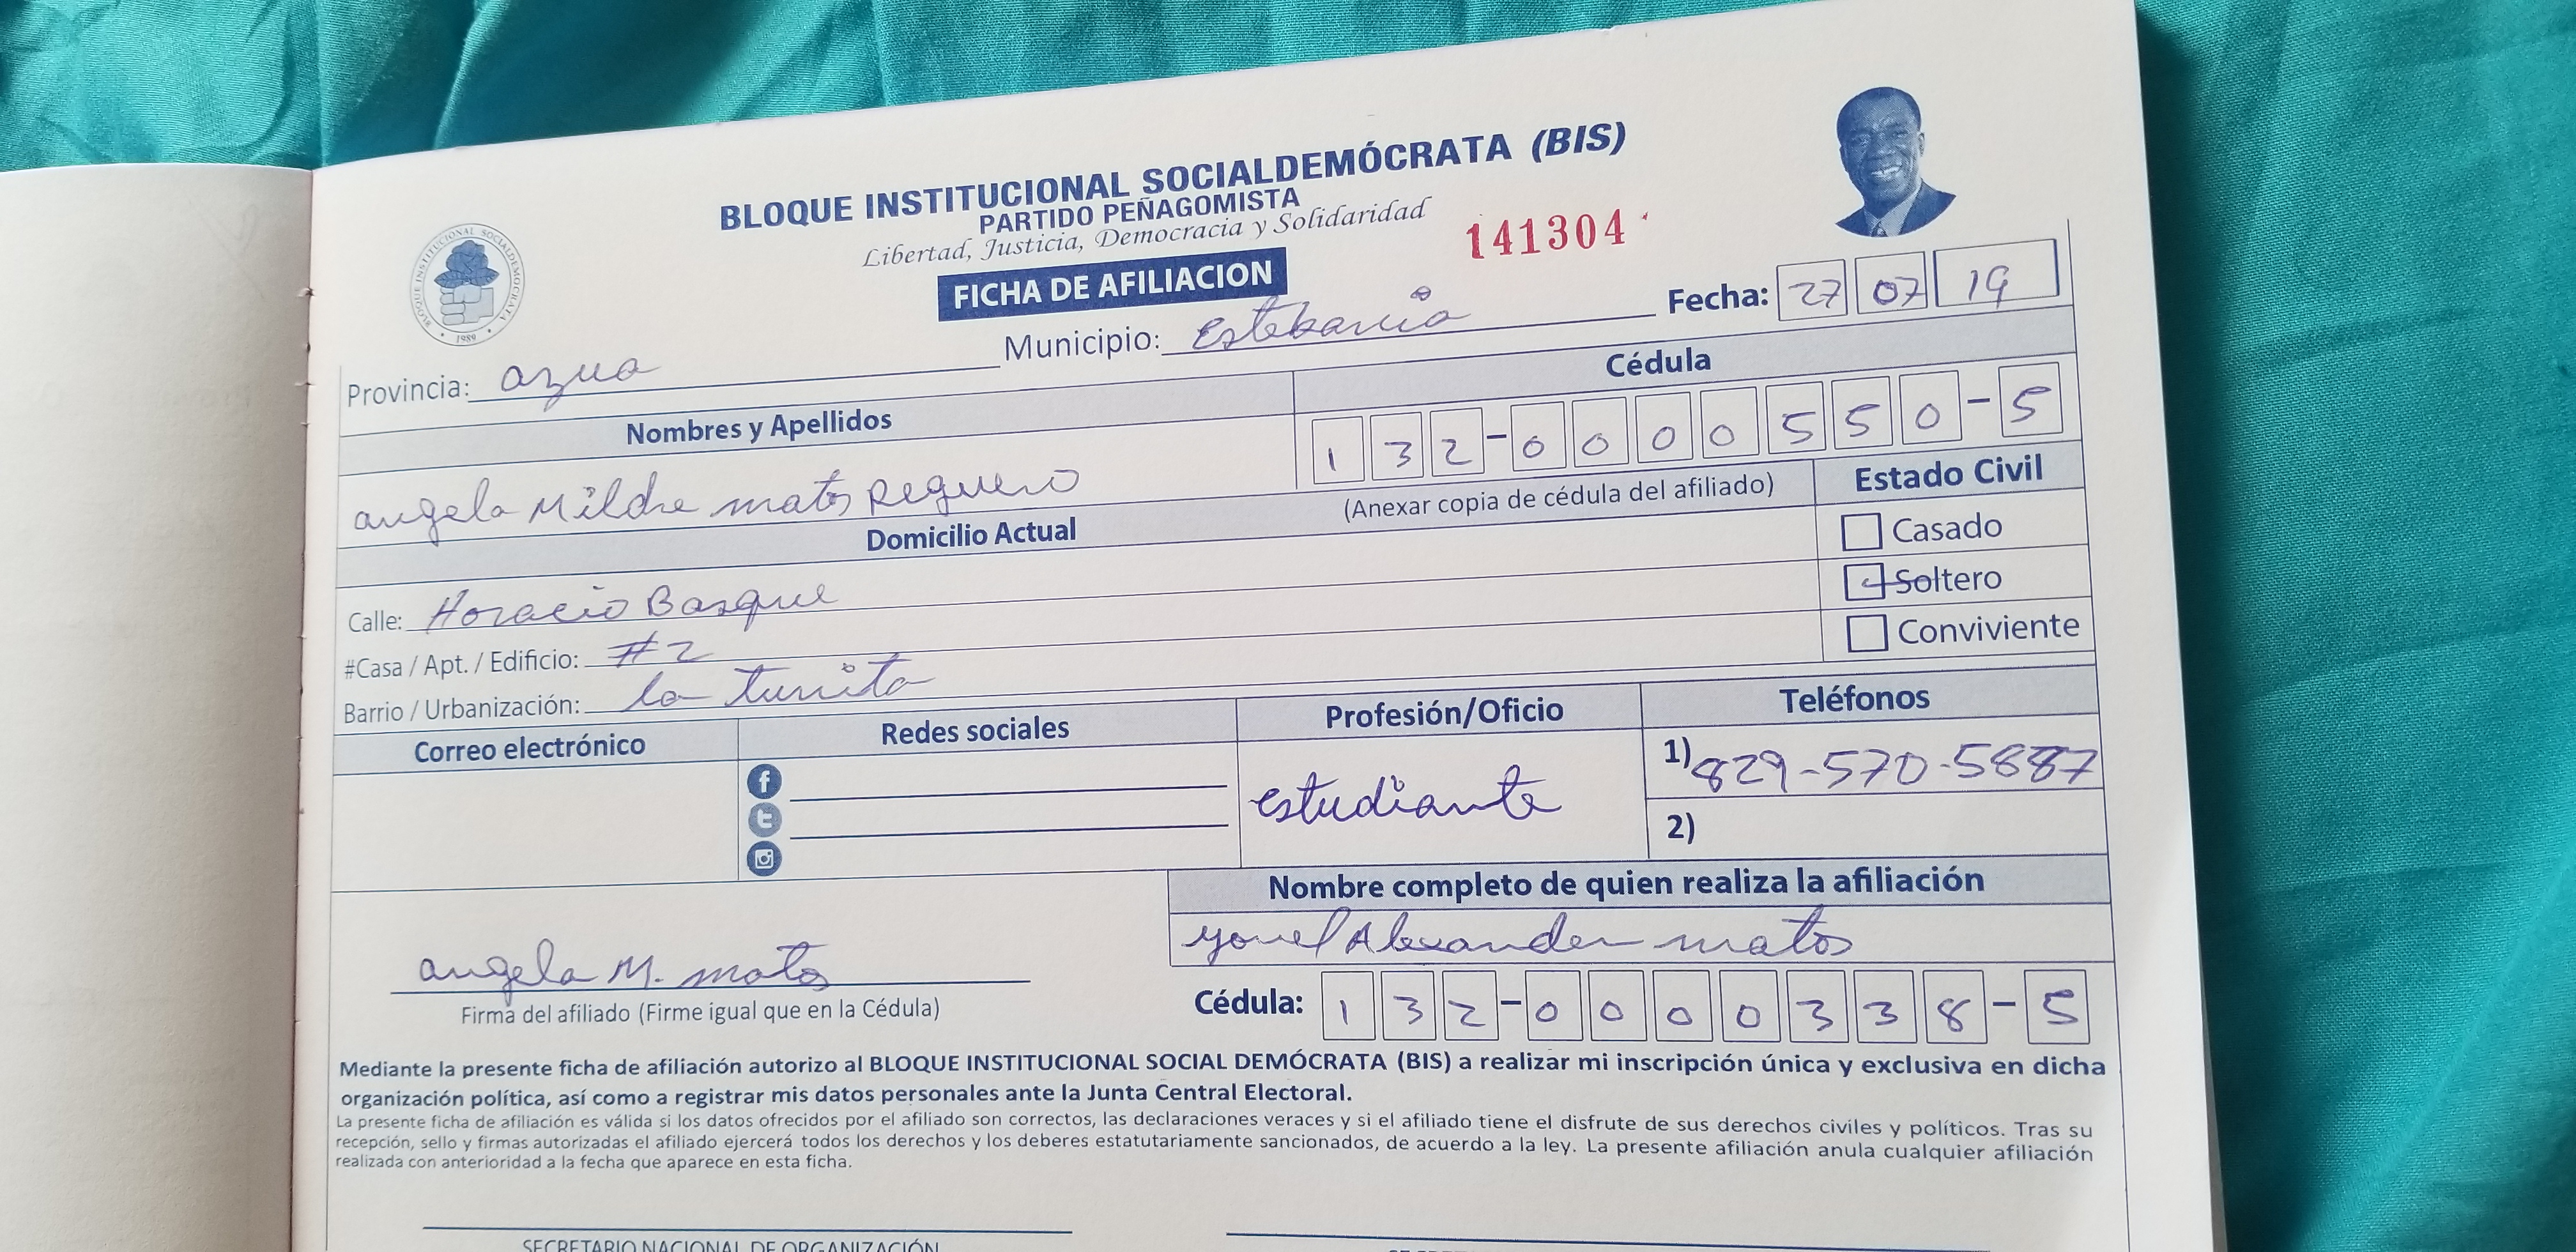 BLOQUE INSTITUCIONAL SOCIALDEMÓCRATA (BIS)
PARTIDO PEÑAGOMISTA
Libertad, Justicia, Democracia y Solidaridad
141304
FICHA DE AFILIACION
BLOQUE INSTITUCIONAL SOCIALDEMOCRATA
1989
Fecha: 27 07 19
Provincia: azua Municipio: Estebania
Nombres y Apellidos Cédula
angela Mildre matos Reguero 132-0000550-5
(Anexar copia de cédula del afiliado)
Domicilio Actual
Estado Civil
Casado
Soltero
Conviviente
Calle: Horacio Basque
#Casa / Apt. / Edificio: #2
Barrio / Urbanización: la
Correo electrónico Redes sociales Profesión/Oficio Teléfonos
estudiante
1) 829-570-5887
2)
Nombre completo de quien realiza la afiliación
Alexander matos
angela M. matos
Firma del afiliado (Firme igual que en la Cédula)
Cédula: 132-0000338-5
Mediante la presente ficha de afiliación autorizo al BLOQUE INSTITUCIONAL SOCIAL DEMÓCRATA (BIS) a realizar mi inscripción única y exclusiva en dicha
organización política, así como a registrar mis datos personales ante la Junta Central Electoral.
La presente ficha de afiliación es válida si los datos ofrecidos por el afiliado son correctos, las declaraciones veraces y si el afiliado tiene el disfrute de sus derechos civiles y políticos. Tras su
recepción, sello y firmas autorizadas el afiliado ejercerá todos los derechos y los deberes estatutariamente sancionados, de acuerdo a la ley. La presente afiliación anula cualquier afiliación
realizada con anterioridad a la fecha que aparece en esta ficha.
SECRETARIO NACIONAL DE ORGANIZACIÓN